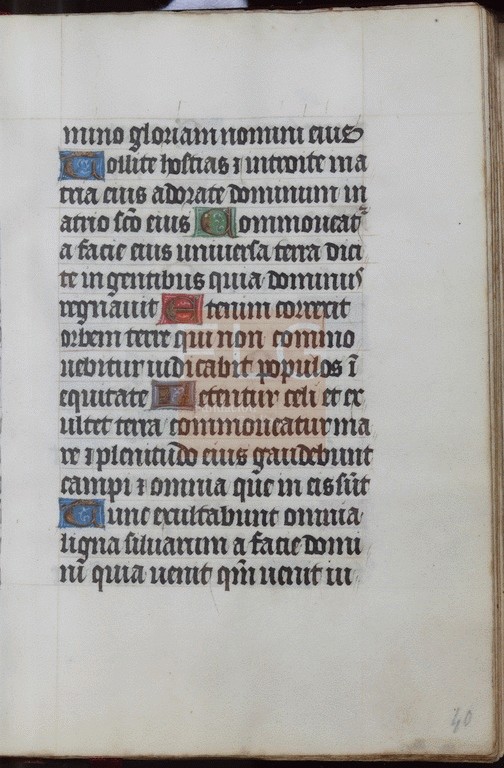 mino gloriam nomini eius
Tollite hostias ⁊ introite in a
tria eius adorate dominum in
atrio sc̄o eius Commoueat᷑
a facie eius uniuersa terra dici
te in gentibus quia dominus
regnauit Etenim correxit
orbem terre qui non commo
uebitur iudicabit populos ī
equitate Letentur celi et ex
ultet terra commoueatur ma
re ⁊ plenitudo eius gaudebunt
campi ⁊ omnia que in eis sūt
Tunc exultabunt omnia
ligna siluarum a facie domi
ni quia uenit qm̄ uenit iu
40